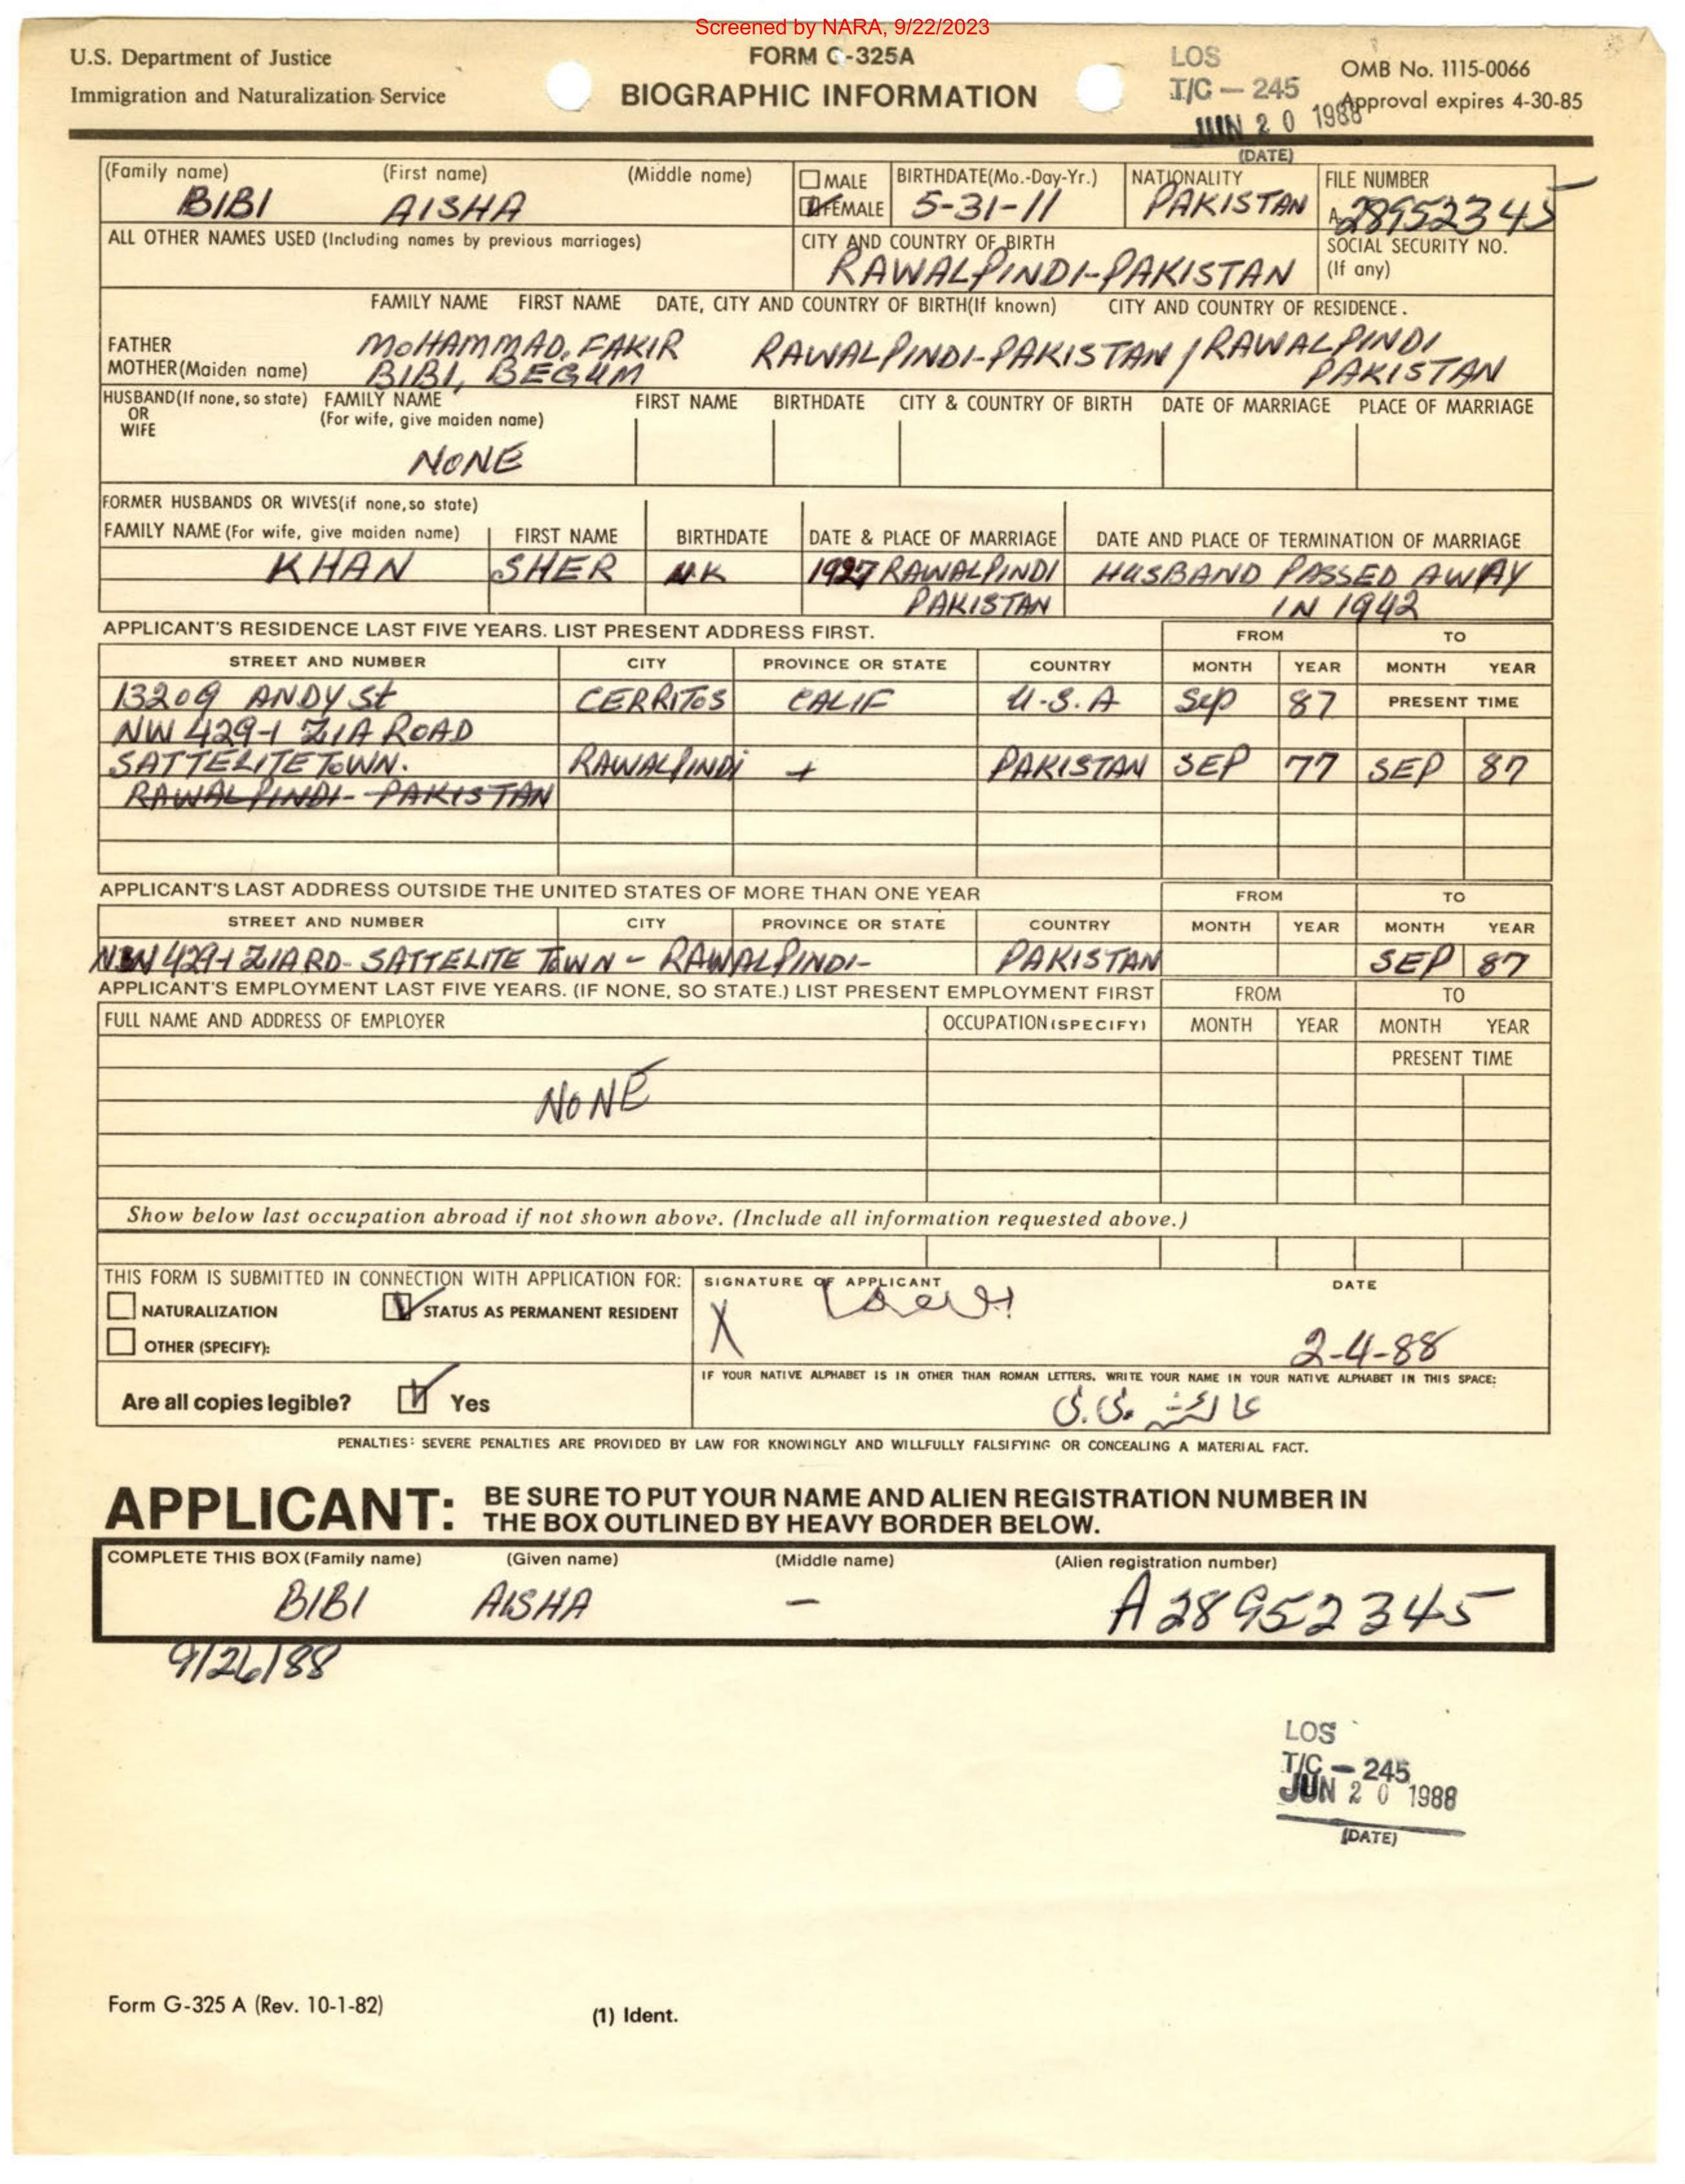 Screened by NARA, 9/22/2023
U.S. Department of Justice
Immigration and Naturalization Service
FORM G-325A
BIOGRAPHIC INFORMATION
LOS
T/C - 245
JUN 20 1988
(DATE)
OMB No. 1115-0066
Approval expires 4-30-85
(Family name) (First name) (Middle name)
BIBI AISHA
MALE
FEMALE
BIRTHDATE(Mo.-Day-Yr.)
5-31-11
NATIONALITY
PAKISTAN
FILE NUMBER
A-28952345
ALL OTHER NAMES USED (Including names by previous marriages)
CITY AND COUNTRY OF BIRTH
RAWALPINDI-PAKISTAN
SOCIAL SECURITY NO.
(If any)
FAMILY NAME FIRST NAME DATE, CITY AND COUNTRY OF BIRTH(If known) CITY AND COUNTRY OF RESIDENCE.
FATHER MOHAMMAD, FAKIR RAWALPINDI-PAKISTAN / RAWALPINDI
MOTHER(Maiden name) BIBI, BEGUM PAKISTAN
HUSBAND(If none, so state) FAMILY NAME FIRST NAME BIRTHDATE CITY & COUNTRY OF BIRTH DATE OF MARRIAGE PLACE OF MARRIAGE
OR (For wife, give maiden name)
WIFE
NONE
FORMER HUSBANDS OR WIVES(if none, so state)
FAMILY NAME (For wife, give maiden name) FIRST NAME BIRTHDATE DATE & PLACE OF MARRIAGE DATE AND PLACE OF TERMINATION OF MARRIAGE
KHAN SHER UK 1927 RAWALPINDI HUSBAND PASSED AWAY
PAKISTAN IN 1942
APPLICANT'S RESIDENCE LAST FIVE YEARS. LIST PRESENT ADDRESS FIRST. FROM TO
STREET AND NUMBER CITY PROVINCE OR STATE COUNTRY MONTH YEAR MONTH YEAR
13209 ANDY St CERRITOS CALIF U.S.A Sep 87 PRESENT TIME
NW 429-1 ZIA ROAD
SATTELITE TOWN. RAWALPINDI + PAKISTAN SEP 77 SEP 87
RAWALPINDI- PAKISTAN
APPLICANT'S LAST ADDRESS OUTSIDE THE UNITED STATES OF MORE THAN ONE YEAR FROM TO
STREET AND NUMBER CITY PROVINCE OR STATE COUNTRY MONTH YEAR MONTH YEAR
NW 429-1 ZIA RD- SATTELITE TOWN - RAWALPINDI- PAKISTAN SEP 87
APPLICANT'S EMPLOYMENT LAST FIVE YEARS. (IF NONE, SO STATE.) LIST PRESENT EMPLOYMENT FIRST FROM TO
FULL NAME AND ADDRESS OF EMPLOYER OCCUPATION (SPECIFY) MONTH YEAR MONTH YEAR
PRESENT TIME
NONE
Show below last occupation abroad if not shown above. (Include all information requested above.)
THIS FORM IS SUBMITTED IN CONNECTION WITH APPLICATION FOR:
NATURALIZATION STATUS AS PERMANENT RESIDENT
OTHER (SPECIFY):
SIGNATURE OF APPLICANT DATE
X 2-4-88
IF YOUR NATIVE ALPHABET IS IN OTHER THAN ROMAN LETTERS, WRITE YOUR NAME IN YOUR NATIVE ALPHABET IN THIS SPACE:
Are all copies legible? Yes
عائشہ بی بی
PENALTIES: SEVERE PENALTIES ARE PROVIDED BY LAW FOR KNOWINGLY AND WILLFULLY FALSIFYING OR CONCEALING A MATERIAL FACT.
APPLICANT: BE SURE TO PUT YOUR NAME AND ALIEN REGISTRATION NUMBER IN
THE BOX OUTLINED BY HEAVY BORDER BELOW.
COMPLETE THIS BOX (Family name) (Given name) (Middle name) (Alien registration number)
BIBI AISHA - A28952345
9/26/88
LOS
T/C - 245
JUN 20 1988
(DATE)
Form G-325 A (Rev. 10-1-82)
(1) Ident.